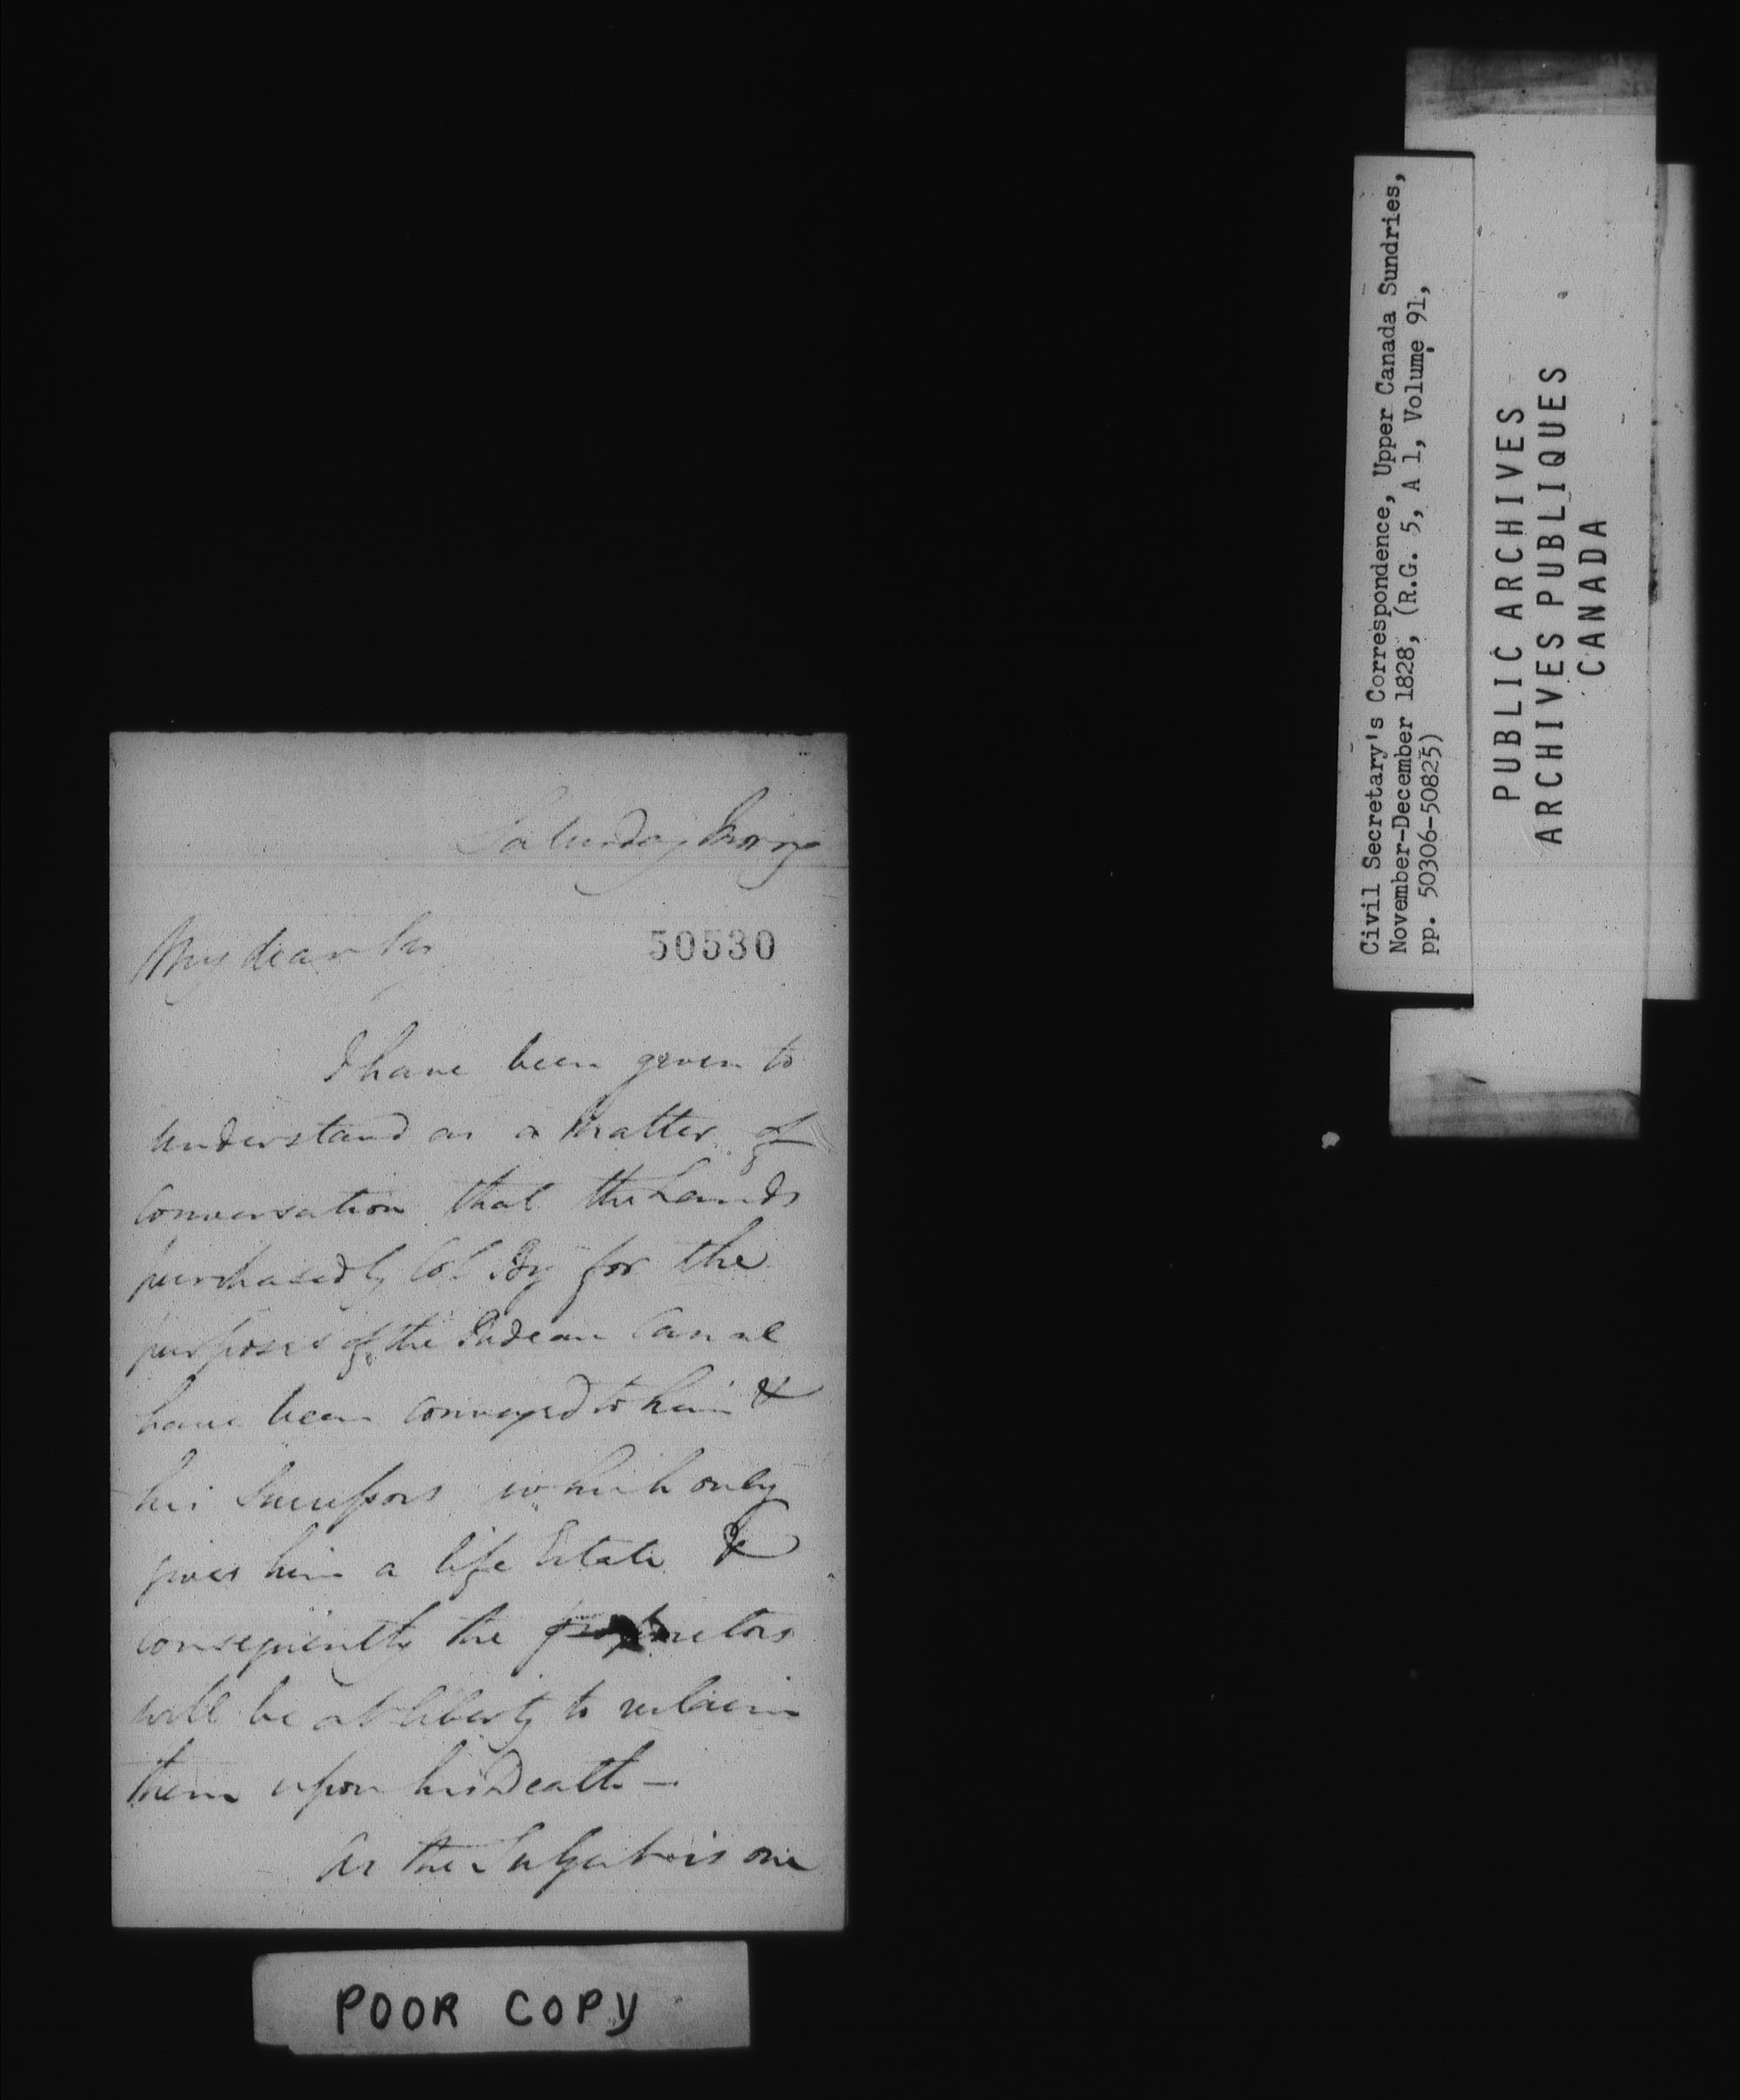 Saturday Morng
My dear Sir
50530
I have been given to
understand as a Matter of
Conversation that the Lands
purchased by Col. By for the
purposes of the Rideau Canal
have been conveyed to him &
his Successors which only
gives him a life Estate &
consequently the proprietors
will be at liberty to reclaim
them upon his Death —
As the Subject is one
POOR COPY
Civil Secretary's Correspondence, Upper Canada Sundries,
November-December 1828, (R.G. 5, A 1, Volume 91,
pp. 50306-50825)
PUBLIC ARCHIVES
ARCHIVES PUBLIQUES
CANADA